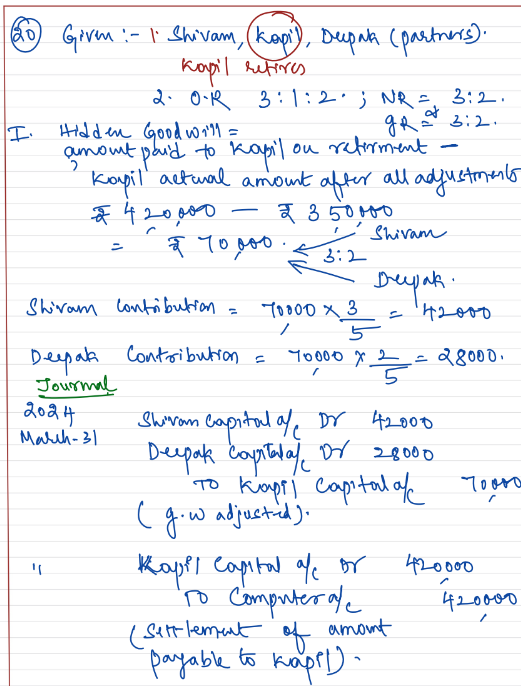 20 Given :- 1. Shivam, Kapil, Deepak (partners).
Kapil retires
2. O.R 3:1:2. ; NR = 3:2.
gR = 3:2.
I. Hidden Goodwill =
amount paid to Kapil on retirment -
Kapil actual amount after all adjustments
₹ 420,000 - ₹ 350,000
= ₹ 70,000.
Shivam
3:2
Deepak.
Shivam Contribution = 70000 x 3/5 = 42000
Deepak Contribution = 70000 x 2/5 = 28000.
Journal
2024
March-31
Shivam Capital a/c Dr 42000
Deepak Capital a/c Dr 28000
TO Kapil Capital a/c 70,000
( g.w adjusted).
" Kapil Capital a/c Dr 420000
TO Computer a/c 420000
(Settlement of amount
payable to Kapil).